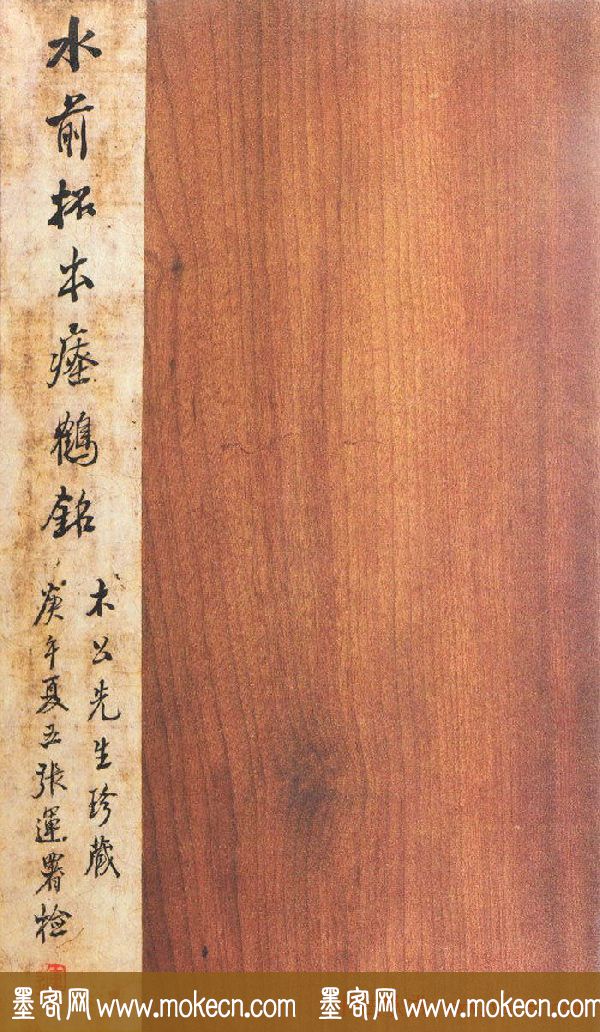 水前拓本瘞鶴銘
木公先生珍藏
庚午夏五張運署檢
墨客网 www.mokecn.com 墨客网 www.mokecn.com